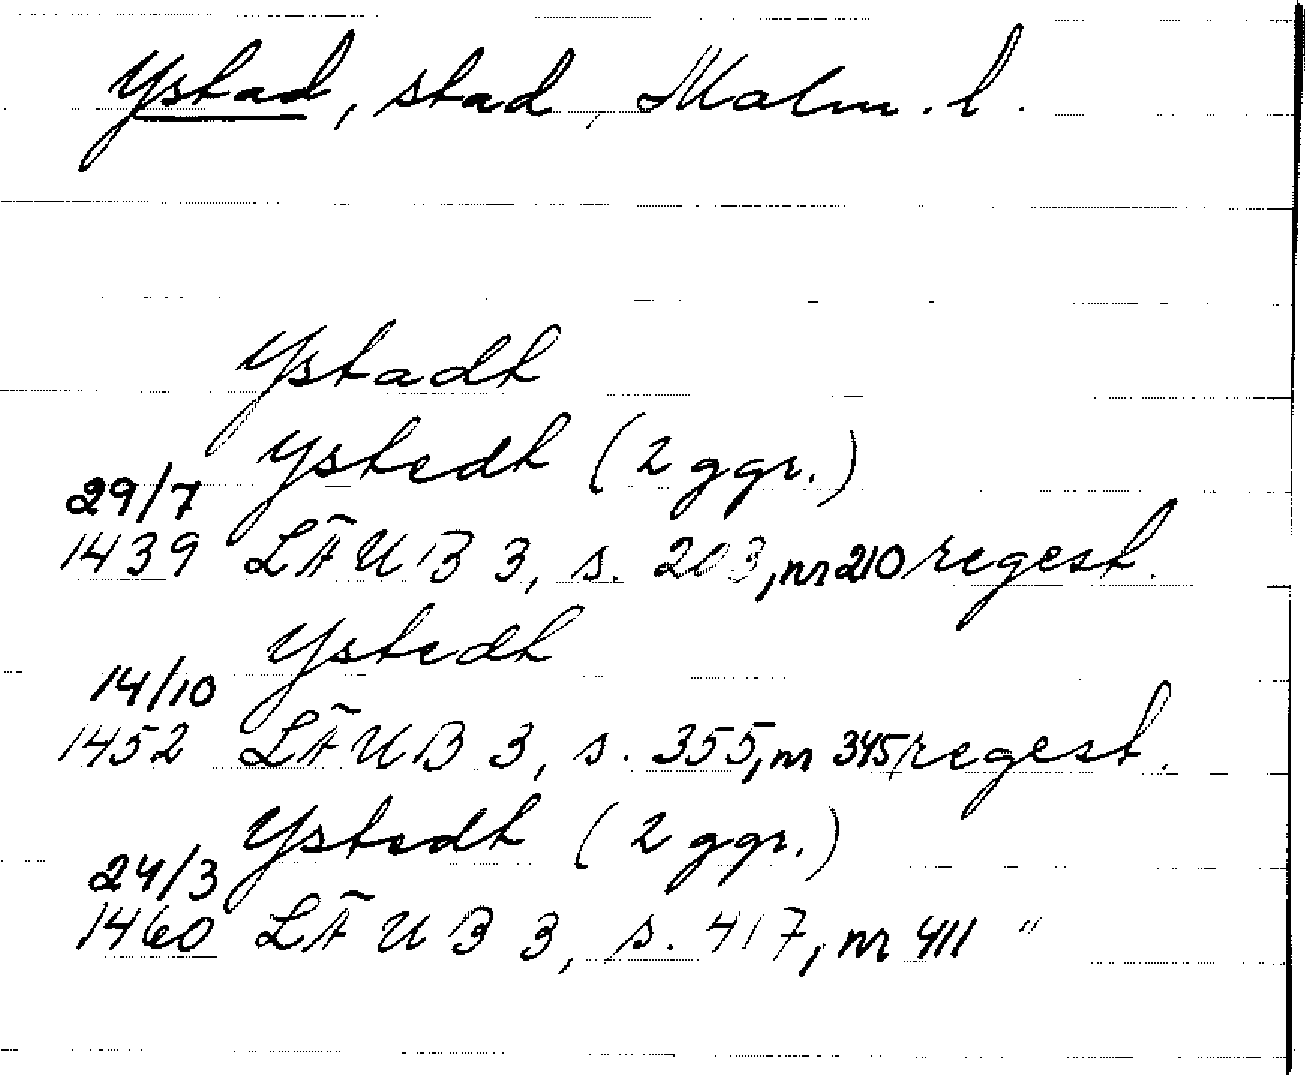 Ystad, stad, Malm. l.
Ystadh
Ystedh (2 ggr.)
29/7
1439 LÄUB 3, s. 203, nr 210 regest.
Ystedh
14/10
1452 LÄUB 3, s. 355, nr 345, regest.
Ystedh (2 ggr.)
24/3
1460 LÄUB 3, s. 417, nr 411 "